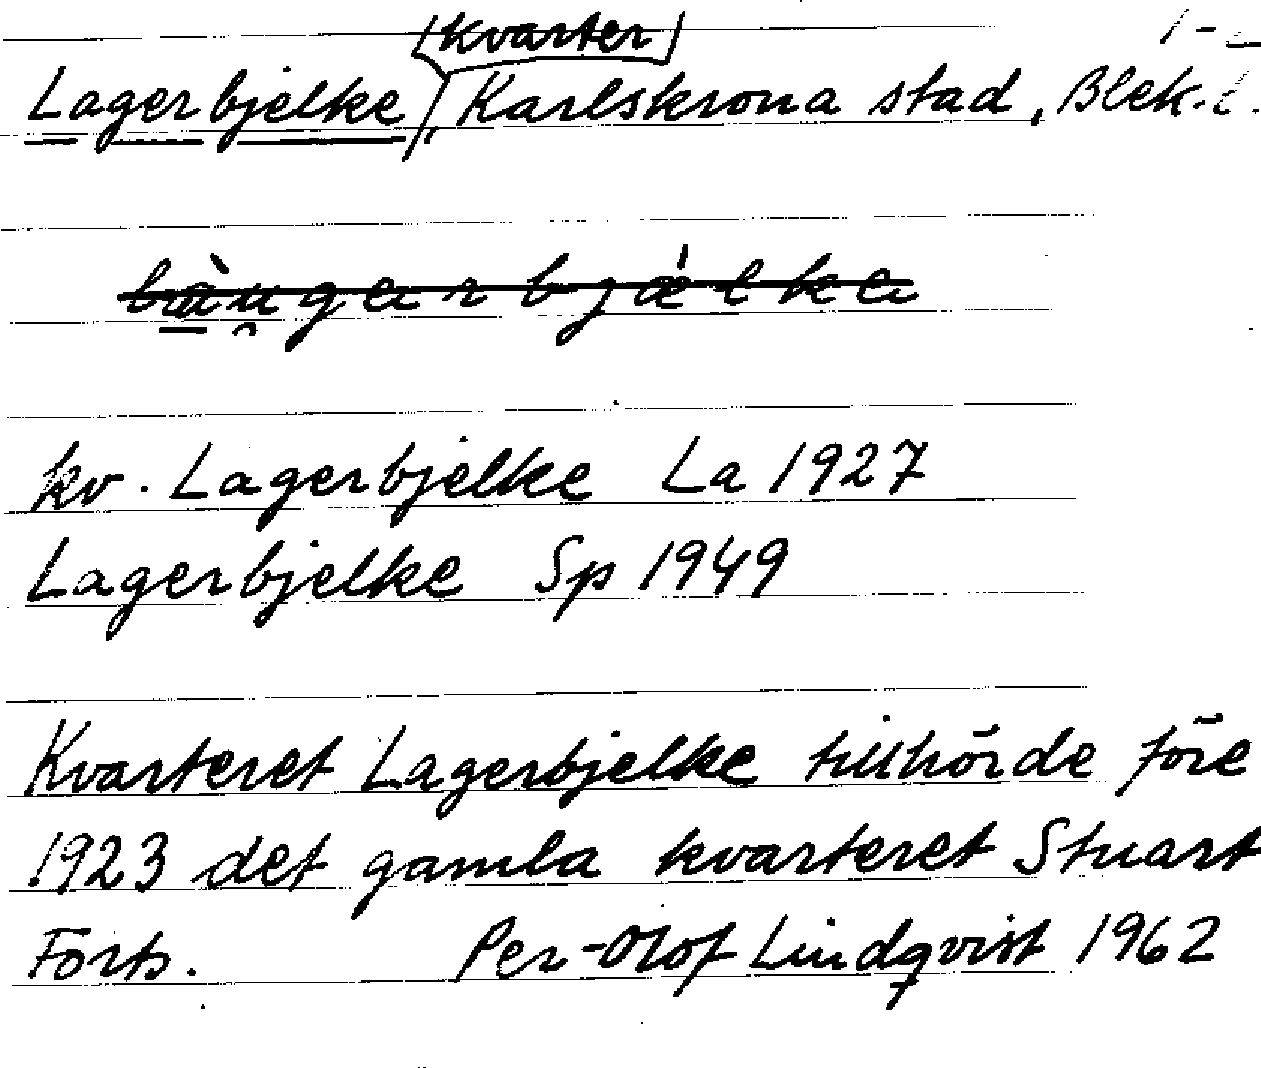 kvarter
Lagerbjelke, Karlskrona stad, Blek. l.
kv. Lagerbjelke La 1927
Lagerbjelke Sp 1949
Kvarteret Lagerbjelke tillhörde före
1923 det gamla kvarteret Stuart
Forts. Per-Olof Lindqvist 1962